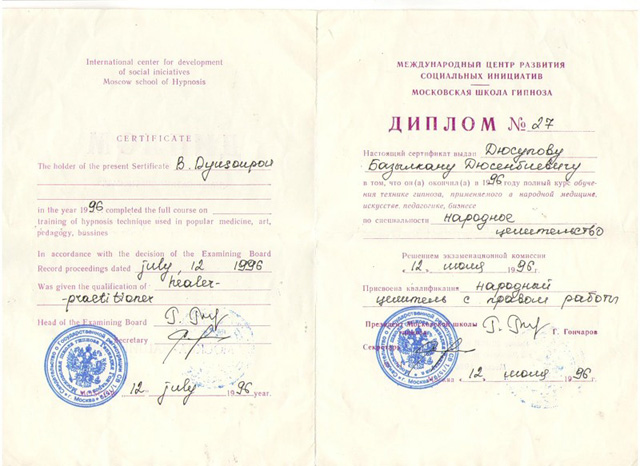 International center for development
of social iniciatives
Moscow school of Hypnosis
CERTIFICATE
The holder of the present Sertificate B. Dyusoupov
in the year 1996 completed the full course on
training of hypnosis technique used in popular medicine, art,
pedagogy, bussines
In accordance with the decision of the Examining Board
Record proceedings dated july, 12 1996
Was given the qualification of healer-
-practitioner
Head of the Examining Board
Secretary
12. july 1996 year.
МЕЖДУНАРОДНЫЙ ЦЕНТР РАЗВИТИЯ
СОЦИАЛЬНЫХ ИНИЦИАТИВ
МОСКОВСКАЯ ШКОЛА ГИПНОЗА
ДИПЛОМ № 27
Настоящий сертификат выдан Дюсупову
Базылкану Дюсенбиевичу
в том, что он(а) окончил(а) в 1996 году полный курс обуче-
ния технике гипноза, применяемого в народной медицине,
искусстве, педагогике, бизнесе
по специальности народное
целительство
Решением экзаменационной комиссии
« 12. июля 1996 г.
Присвоена квалификация народный
целитель с правом работы
Президент Московской школы
Г. Гончаров
Секретарь
Москва « 12. июля 1996 г.